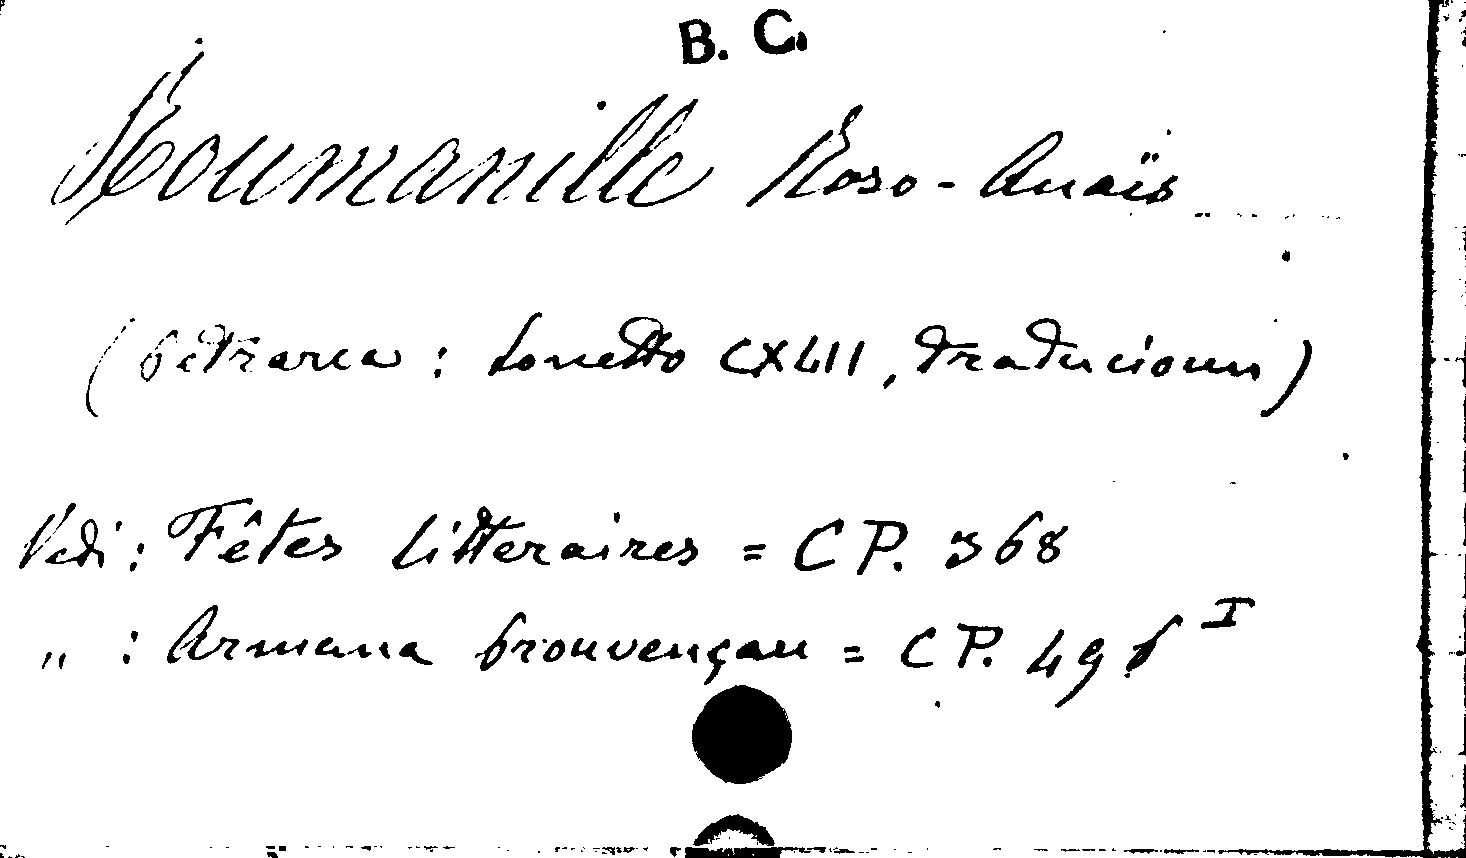 B. C.
Roumanille Roso-Anaïs
(Petrarca : Sonetto CXLII, traducioun)
Vedi : Fêtes littéraires = C P. 368
„ : Armana prouvençau = C P. 496 I